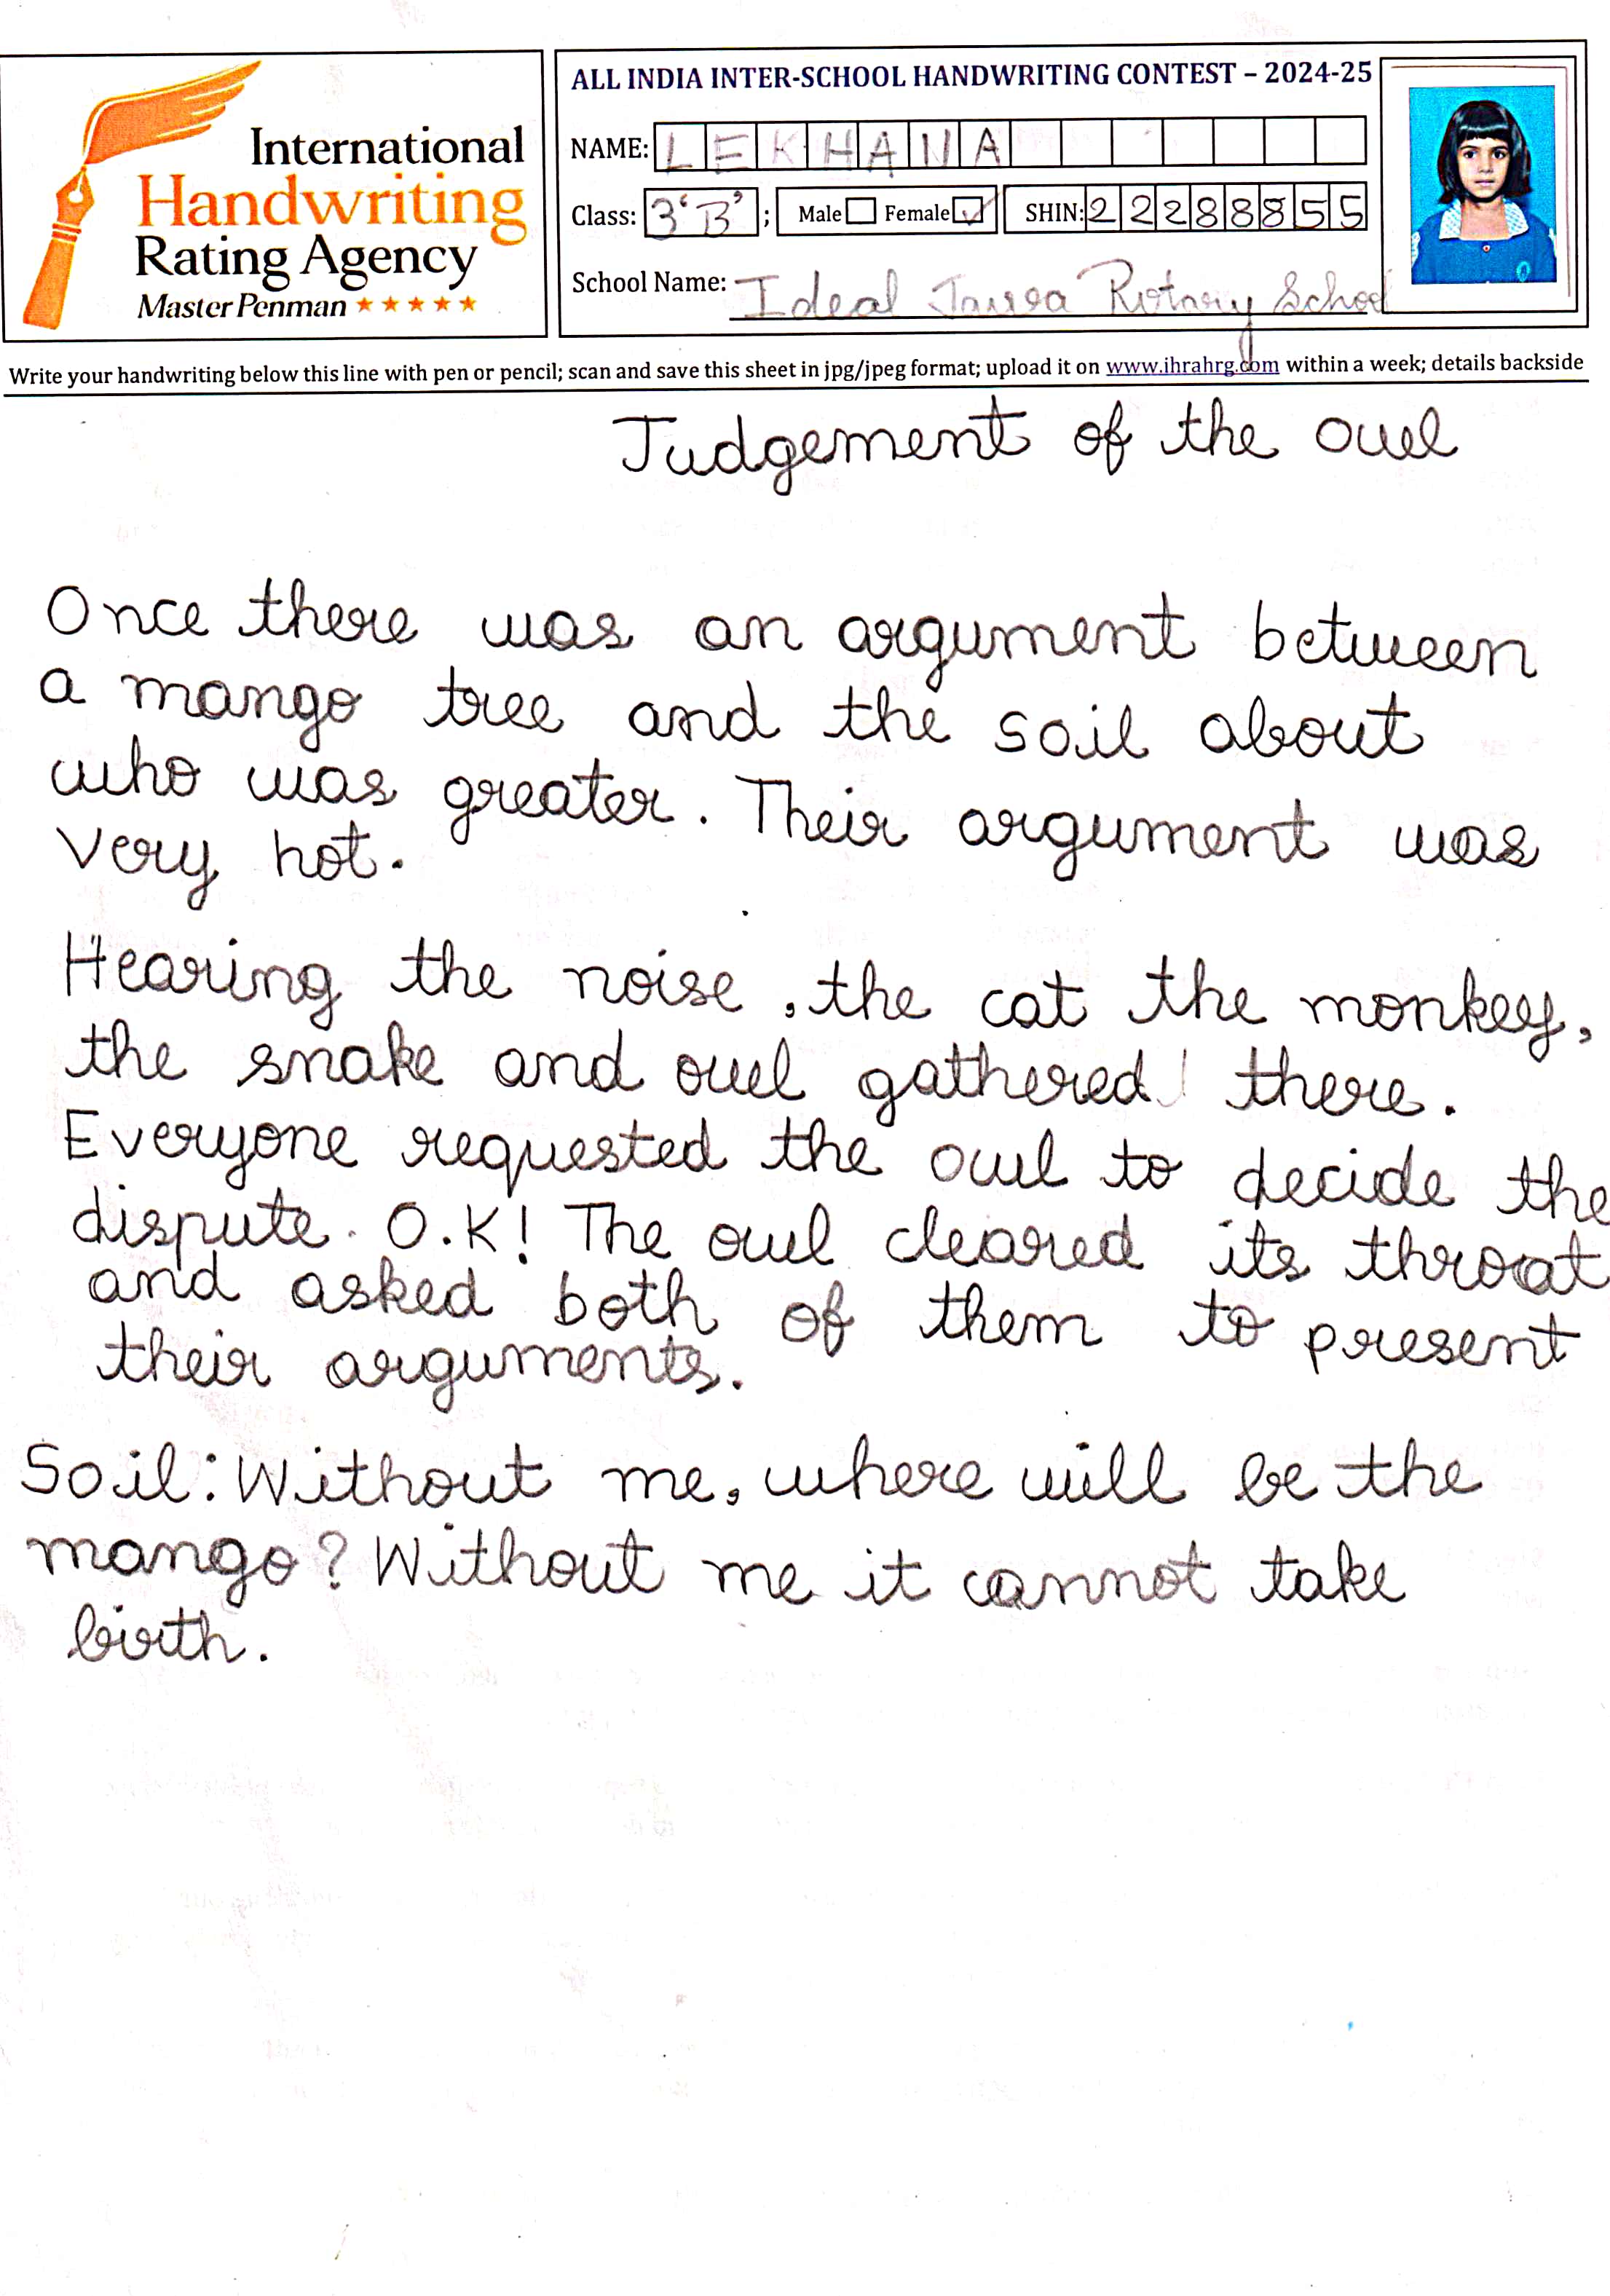 International
Handwriting
Rating Agency
Master Penman
ALL INDIA INTER-SCHOOL HANDWRITING CONTEST – 2024-25
NAME: LEKHANA
Class: 3'B' ; Male Female SHIN: 22288855
School Name: Ideal Rotary School
Write your handwriting below this line with pen or pencil; scan and save this sheet in jpg/jpeg format; upload it on www.ihrahrg.com within a week; details backside
Judgement of the owl
Once there was an argument between
a mango tree and the soil about
who was greater. Their argument was
very hot.
Hearing the noise , the cat the monkey,
the snake and owl gathered there.
Everyone requested the owl to decide the
dispute. O.K! The owl cleared its throat
and asked both of them to present
their arguments.
Soil: Without me, where will be the
mango? Without me it cannot take
birth.